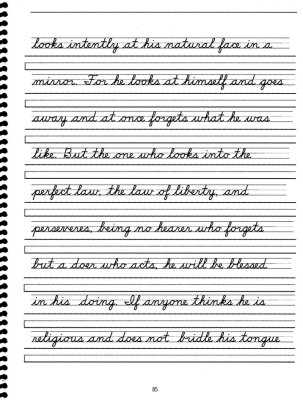 looks intently at his natural face in a
mirror. For he looks at himself and goes
away and at once forgets what he was
like. But the one who looks into the
perfect law, the law of liberty, and
perseveres, being no hearer who forgets
but a doer who acts, he will be blessed
in his doing. If anyone thinks he is
religious and does not bridle his tongue
85